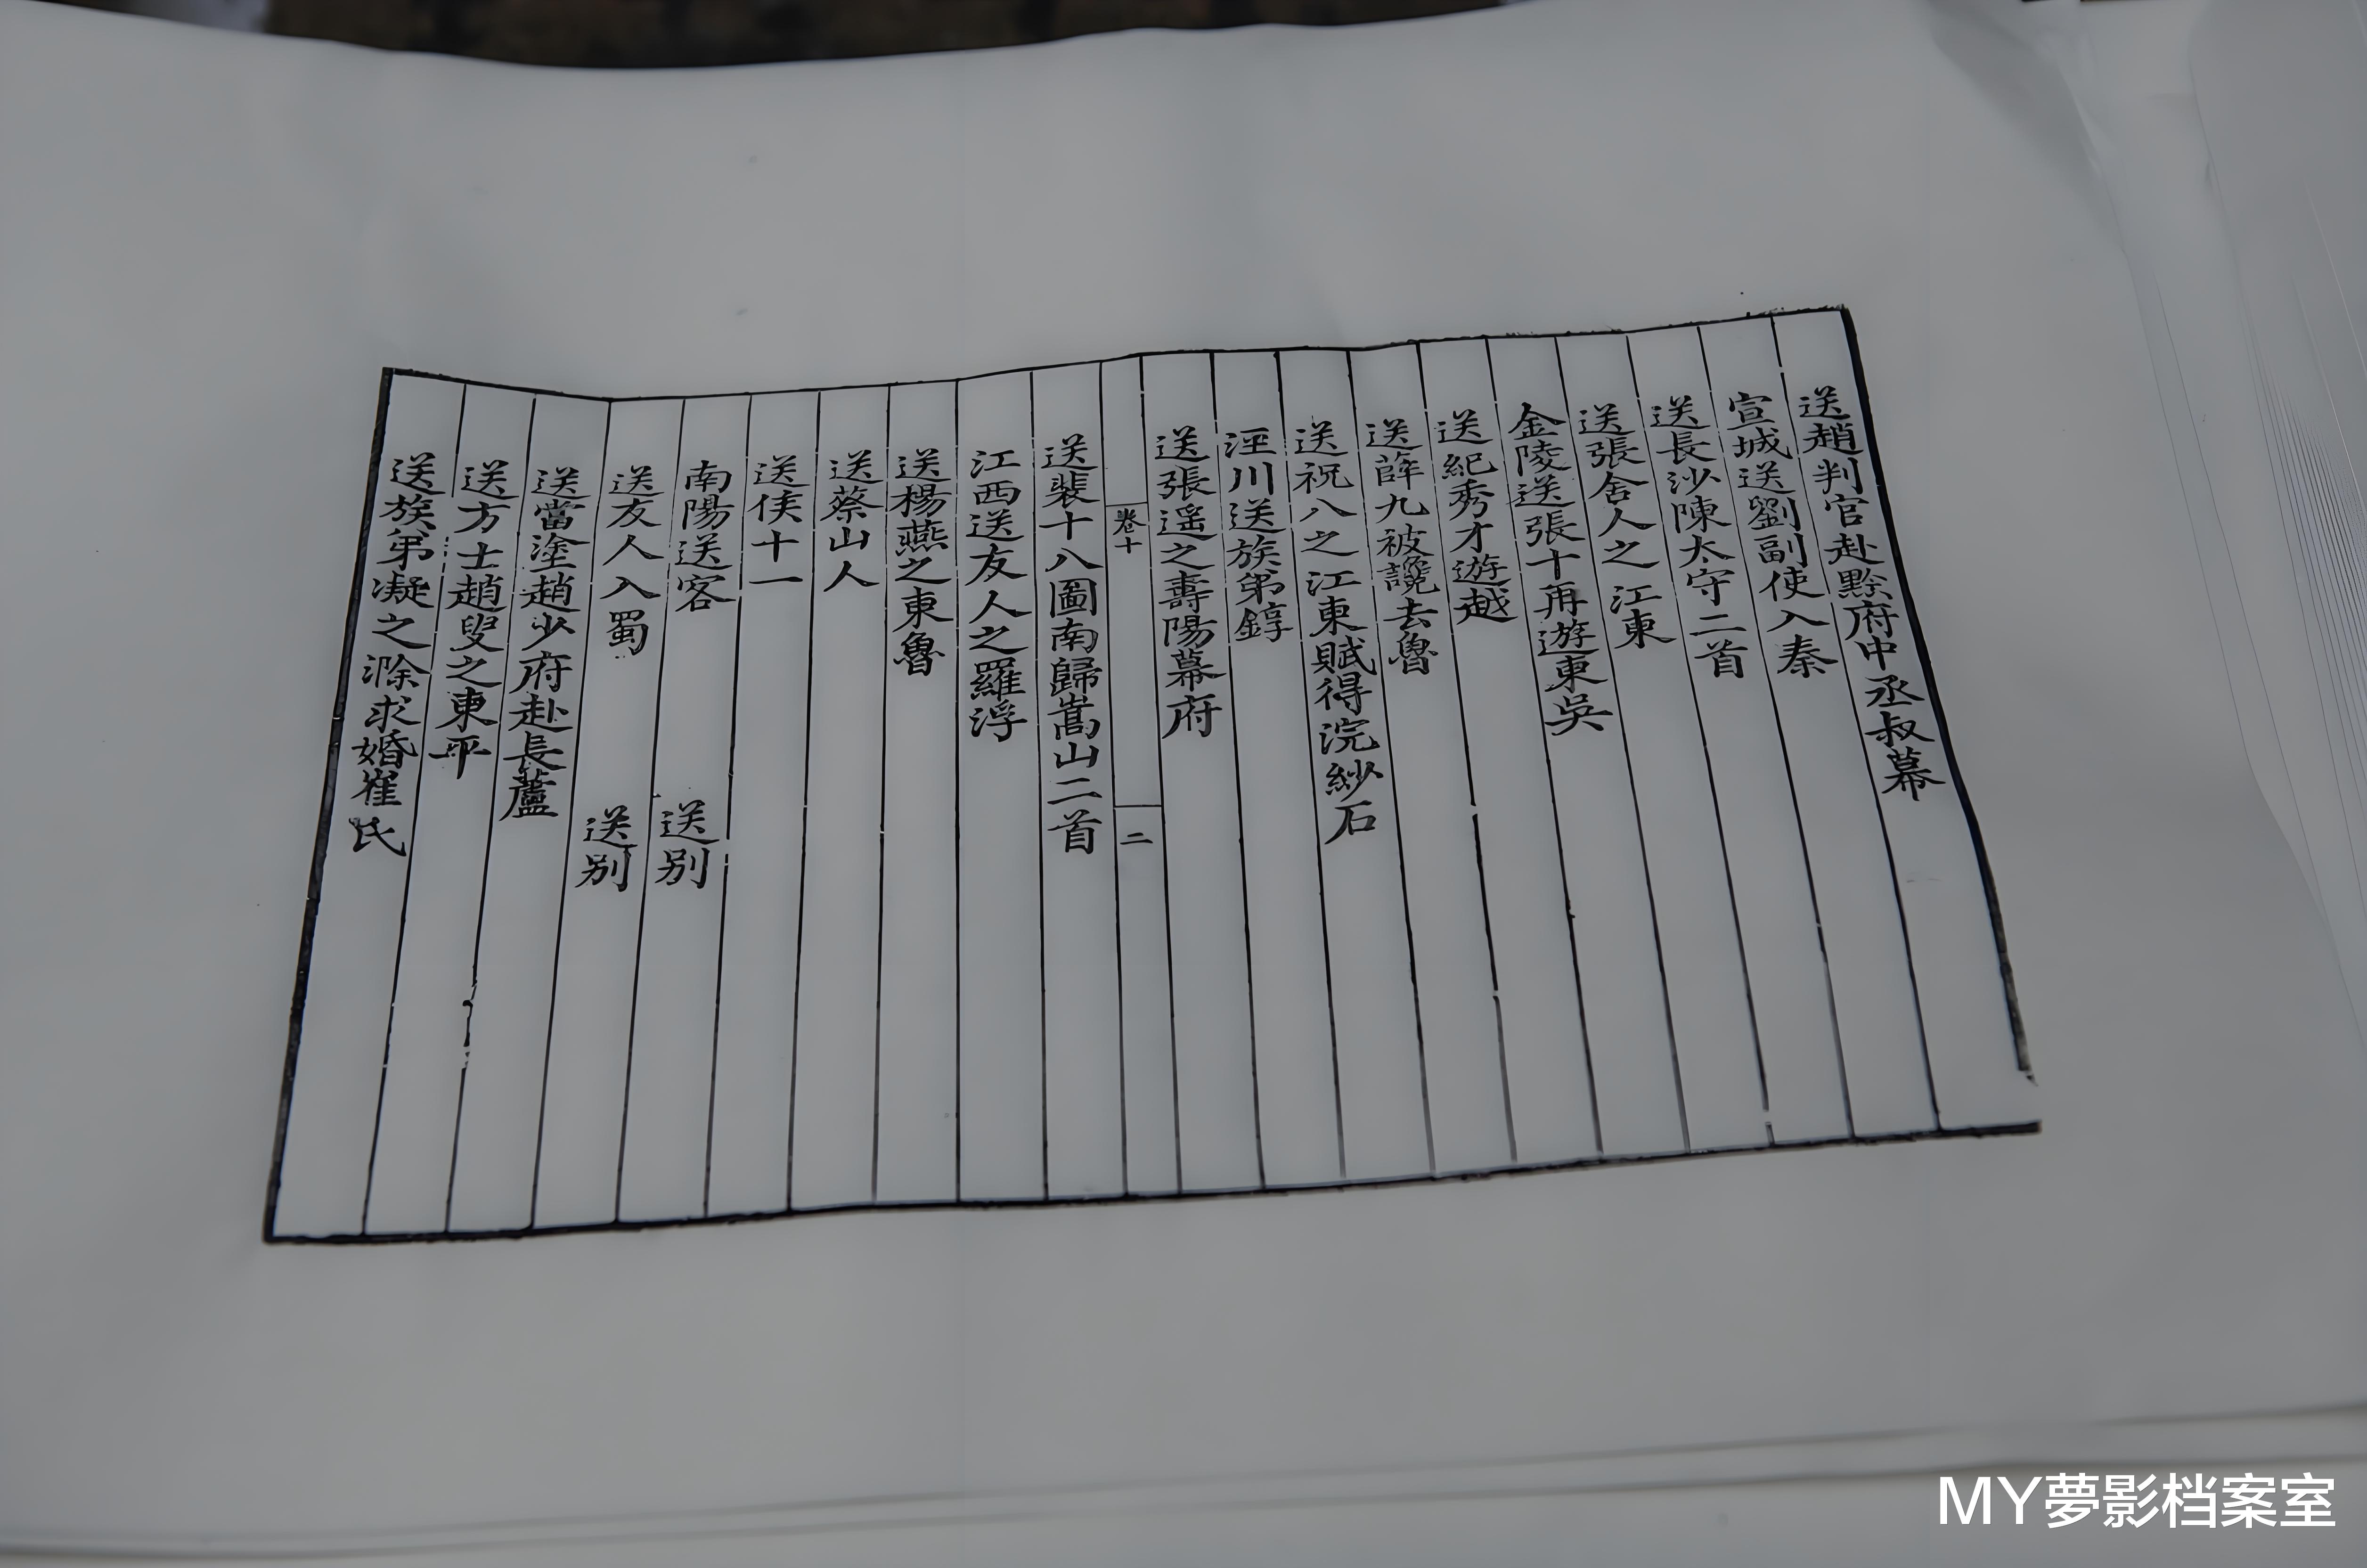 送趙判官赴黔府中丞叔幕
宣城送劉副使入秦
送長沙陳太守二首
送張舍人之江東
金陵送張十再遊東吳
送紀秀才遊越
送薛九被讒去魯
送祝八之江東賦得浣紗石
涇川送族弟錞
送張遥之壽陽幕府
卷十
二
送裴十八圖南歸嵩山二首
江西送友人之羅浮
送楊燕之東魯
送蔡山人
送侯十一
南陽送客 送别
送友人入蜀 送别
送當塗趙少府赴長蘆
送方士趙叟之東平
送族弟凝之滁求婚崔氏
MY夢影档案室